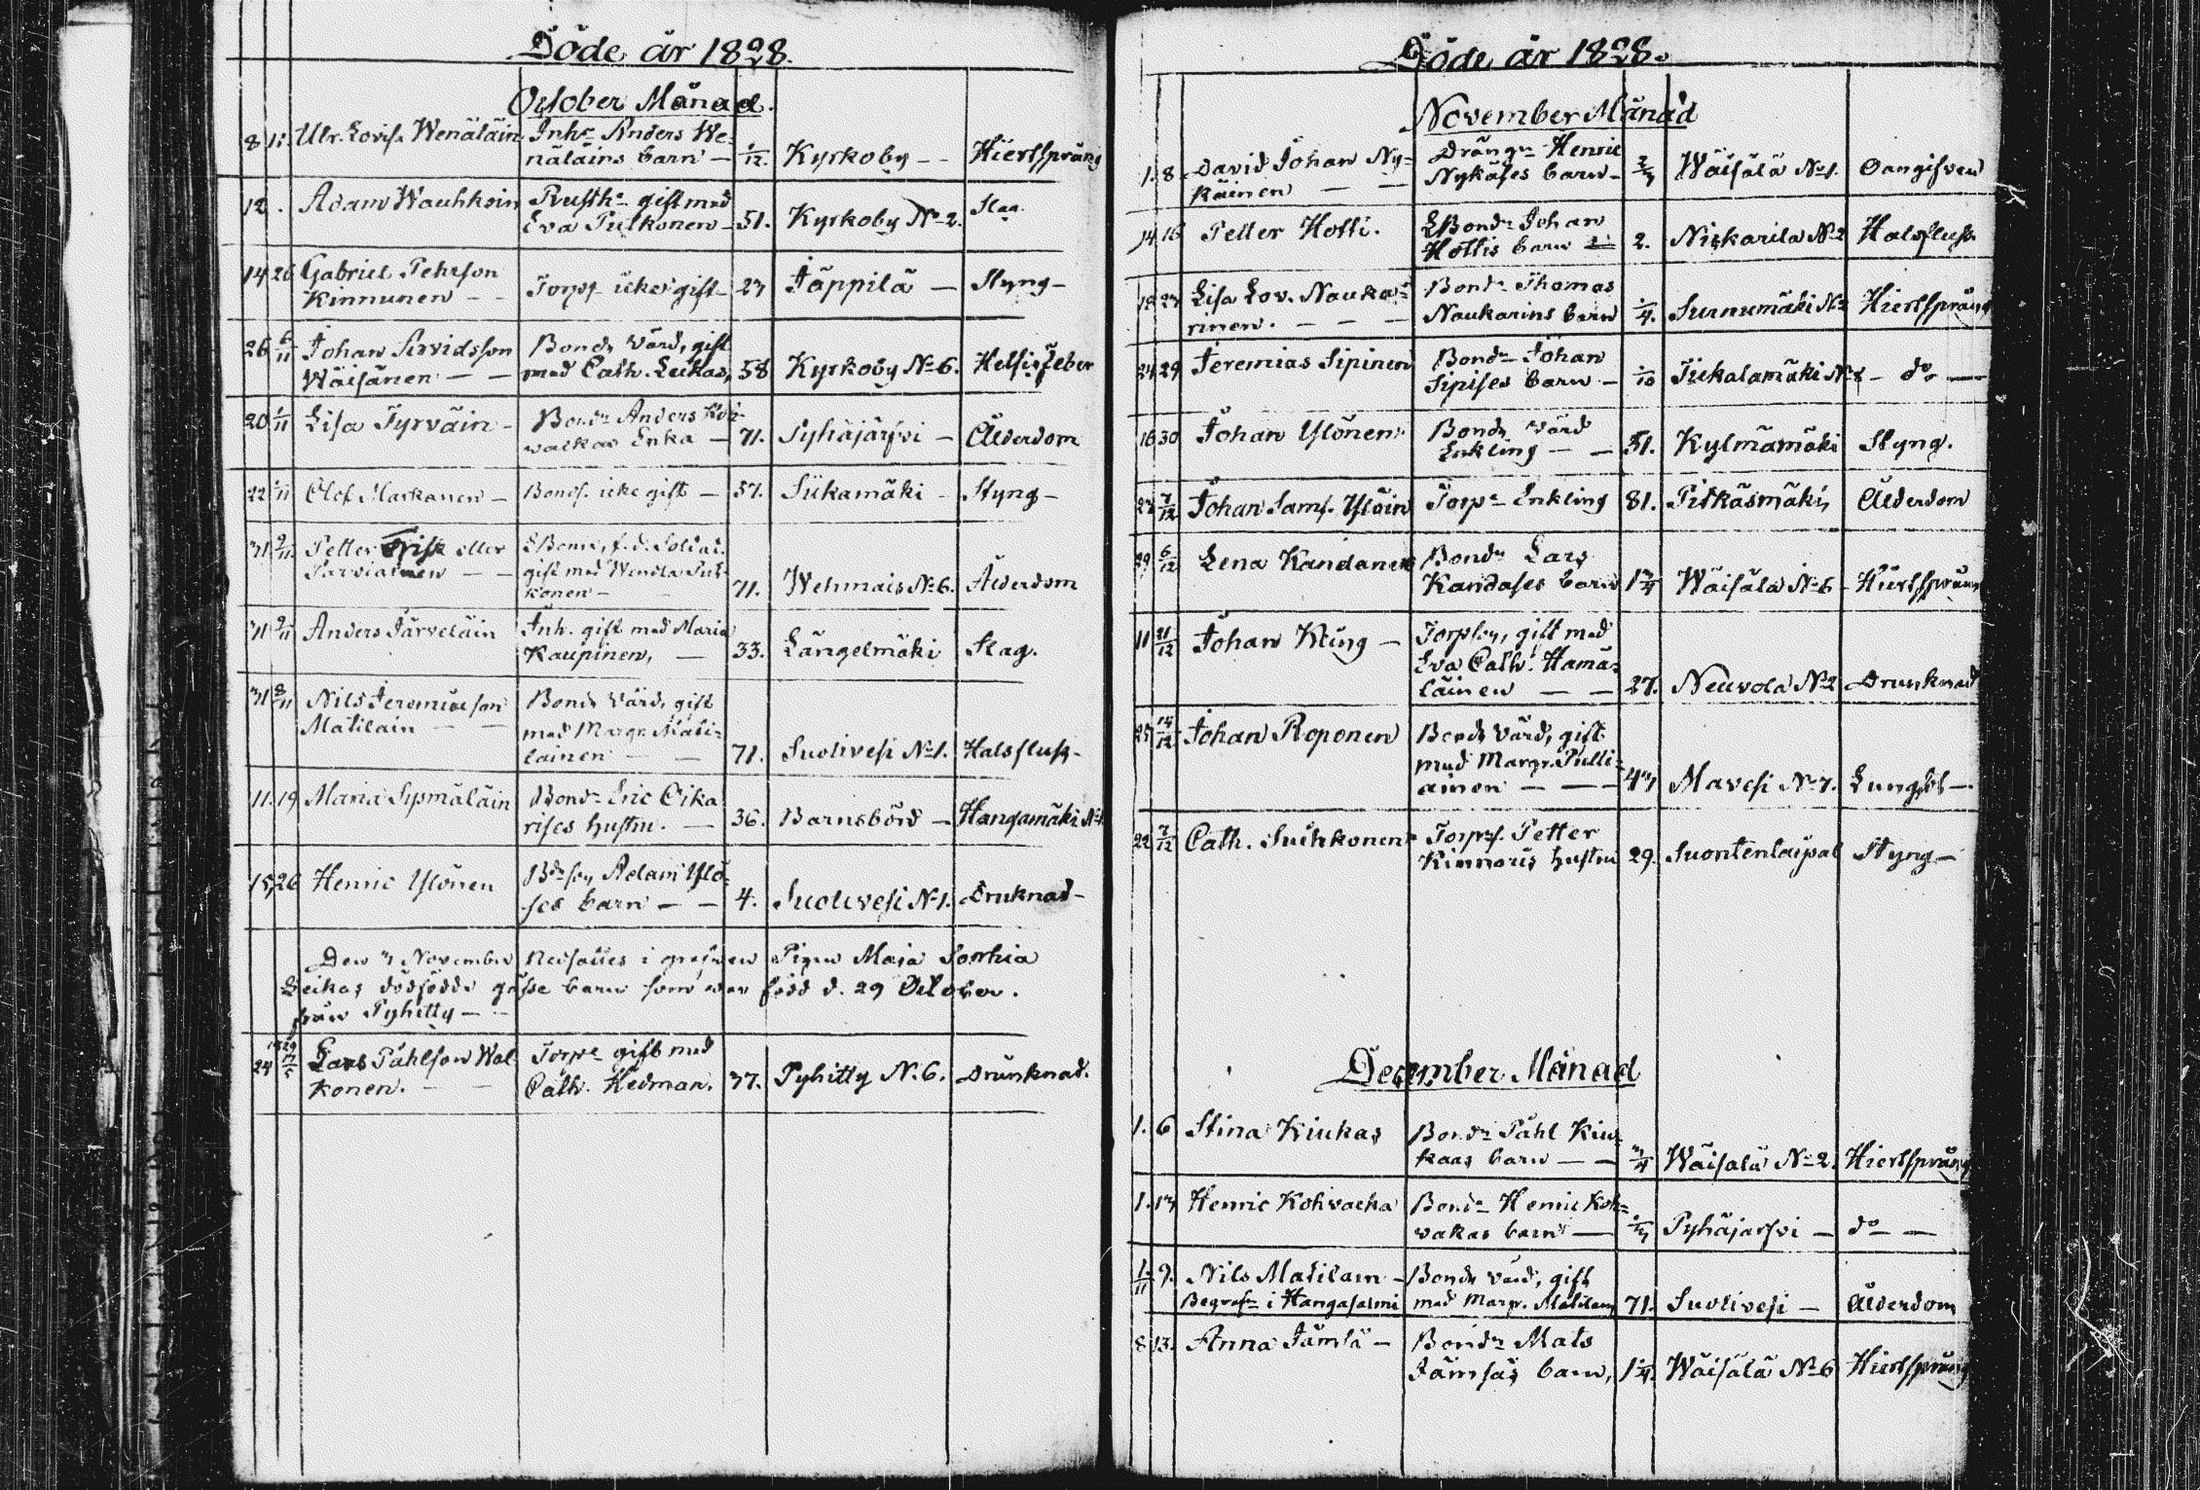 Döde år 1828.
October Månad.
8 11. Ulr. Lovisa Wenäläin Inhs Anders We-
näläins barn — 1/12. Kyrkoby — Hiertsprång
12. Adam Wauhkoin Rusth. gift med Slag
Eva Putkonen — 51. Kyrkoby No 2.
14 26 Gabriel Pehrson
Kinnunen — Torp. icke gift — 27 Jäppilä — Styng —
26 6/11 Johan Arvidsson Bonde Värd, gift
Wäisänen — med Cath. Leikas, 58 Kyrkoby No 6. Hetsig feber
20 1/11 Lisa Tyrväin — Bondn Anders Koh-
wackas Enka — 71. Pyhäjärfvi — Ålderdom
22 1/11 Olof Markanen — Bonds. icke gift — 57. Siikamäki — Styng —
31 9/11 Petter Frisk eller f. d. Soldat.
Parviainen — gift med Wendla Put-
konen — 71. Wehmais No 6. Ålderdom
31 9/11 Anders Järveläin Inh. gift med Maria
Kaupinen, — 33. Längelmäki Slag.
31 8/11 Nils Jeremiæson Bonde Värd, gift
Matilain — med Margr. Mati-
lainen — 71. Suolivesi No 1. Halsfluss —
11. 19 Maria Sysmäläin Bondn Eric Oika
rises hustru. — 36. Barnsbörd — Hangamäki No
15 26 Henric Ylönen Bdeson Adam Ylö-
ses barn — 4. Suolivesi No 1. Drunknad —
Den 7 November nedsattes i grafven Pigan Maja Sophia
Leikas dödfödde gosse barn som var född d. 29 October.
från Pyhitty —
1829
24 17/5 Lars Påhlson Wal- Torpe gift med
konen. — Cath. Hedman. 37. Pyhitty N. 6. Drunknad.
Döde år 1828.
November Månad
1. 8. David Johan Ny- Drängn Henric
käinen — Nykäses barn — 2/3 Wäisälä No 1. Oangifven
14 16 Petter Hotti. Bondn Johan
Hottis barn 2. Niskarila No 2 Halsfluss.
18 23 Lisa Lov. Nauka- Bondn Thomas
rinen. — Naukarins barn 1/4. Surnumäki No Hiertsprång
24 29 Jeremias Sipinen Bondn Johan
Sipises barn — 1/10 Tiekalamäki No 8 — do —
16 30 Johan Ylönen Bonde Värd
Enkling — 51. Kylmämäki Styng.
27 7/12 Johan Sams. Ylöin Torpe Enkling 81. Pitkäsmäki Ålderdom
29 6/12 Lena Kandanen Bondn Lars
Kandases barn 1 3/4 Wäisälä No 6 — Hiertsprång
11 21/12 Johan Kling — Torpson, gift med
Eva Cath. Hämä-
läinen — 27. Neuvola No 2 Drunknad
25 14/12 Johan Roponen Bonde Värd, gift
med Margr. Pulli-
ainen — 47 Mavesi No 7. Lungsot —
22 7/12 Cath. Suihkonen Torps. Petter
Kinnaris hustru 29. Suontentaipal Styng —
December Månad
1. 6 Stina Kiukas Bondn Påhl Kiu-
kaas barn — 3/4 Wäisälä No 2. Hiertsprång
1. 13 Henric Kohvacka Bondn Henric Koh-
wakas barn — Pyhäjarfvi — do —
1/11 9. Nils Matilain — Bonde värd, gift
Begrafn i Hangasalmi med Margr. Matilain 71. Suolivesi — Ålderdom
8 13. Anna Jämsä — Bondn Mats
Jämsäs barn, 1 1/4. Wäisälä No 6 Hiertsprång